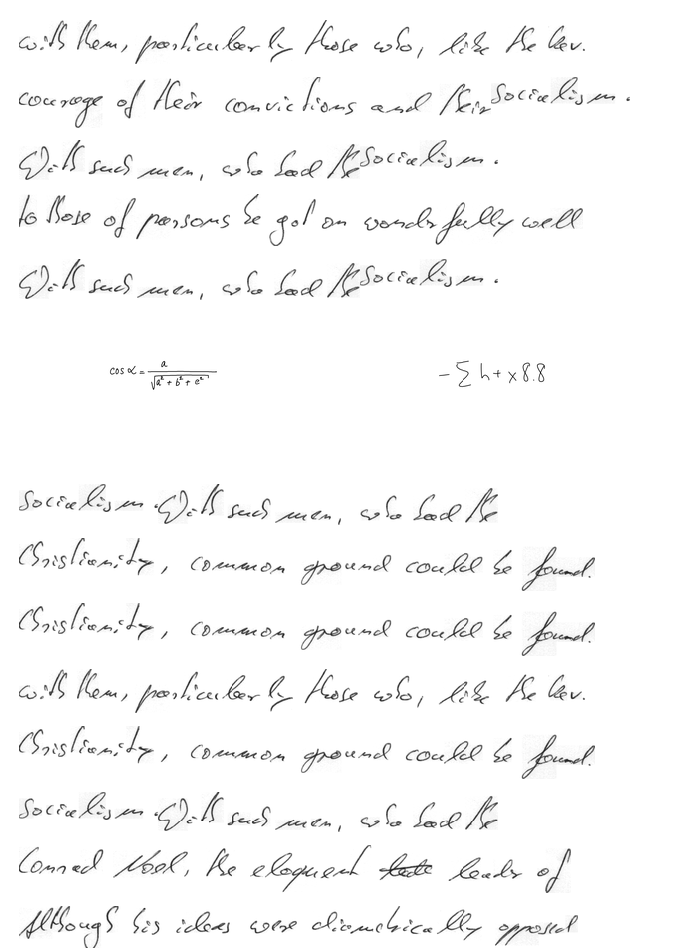 with them, particularly those who, like the Rev.
courage of their convictions and their Socialism.
With such men, who had the Socialism.
to those of parsons he got on wonderfully well
With such men, who had the Socialism.
cos α = a / √(a² + b² + c²)
- ∑ h + x 8.8
Socialism. With such men, who had the
Christianity, common ground could be found.
Christianity, common ground could be found.
with them, particularly those who, like the Rev.
Christianity, common ground could be found.
Socialism. With such men, who had the
Conrad Noel, the eloquent leader of
Although his ideas were diametrically opposed